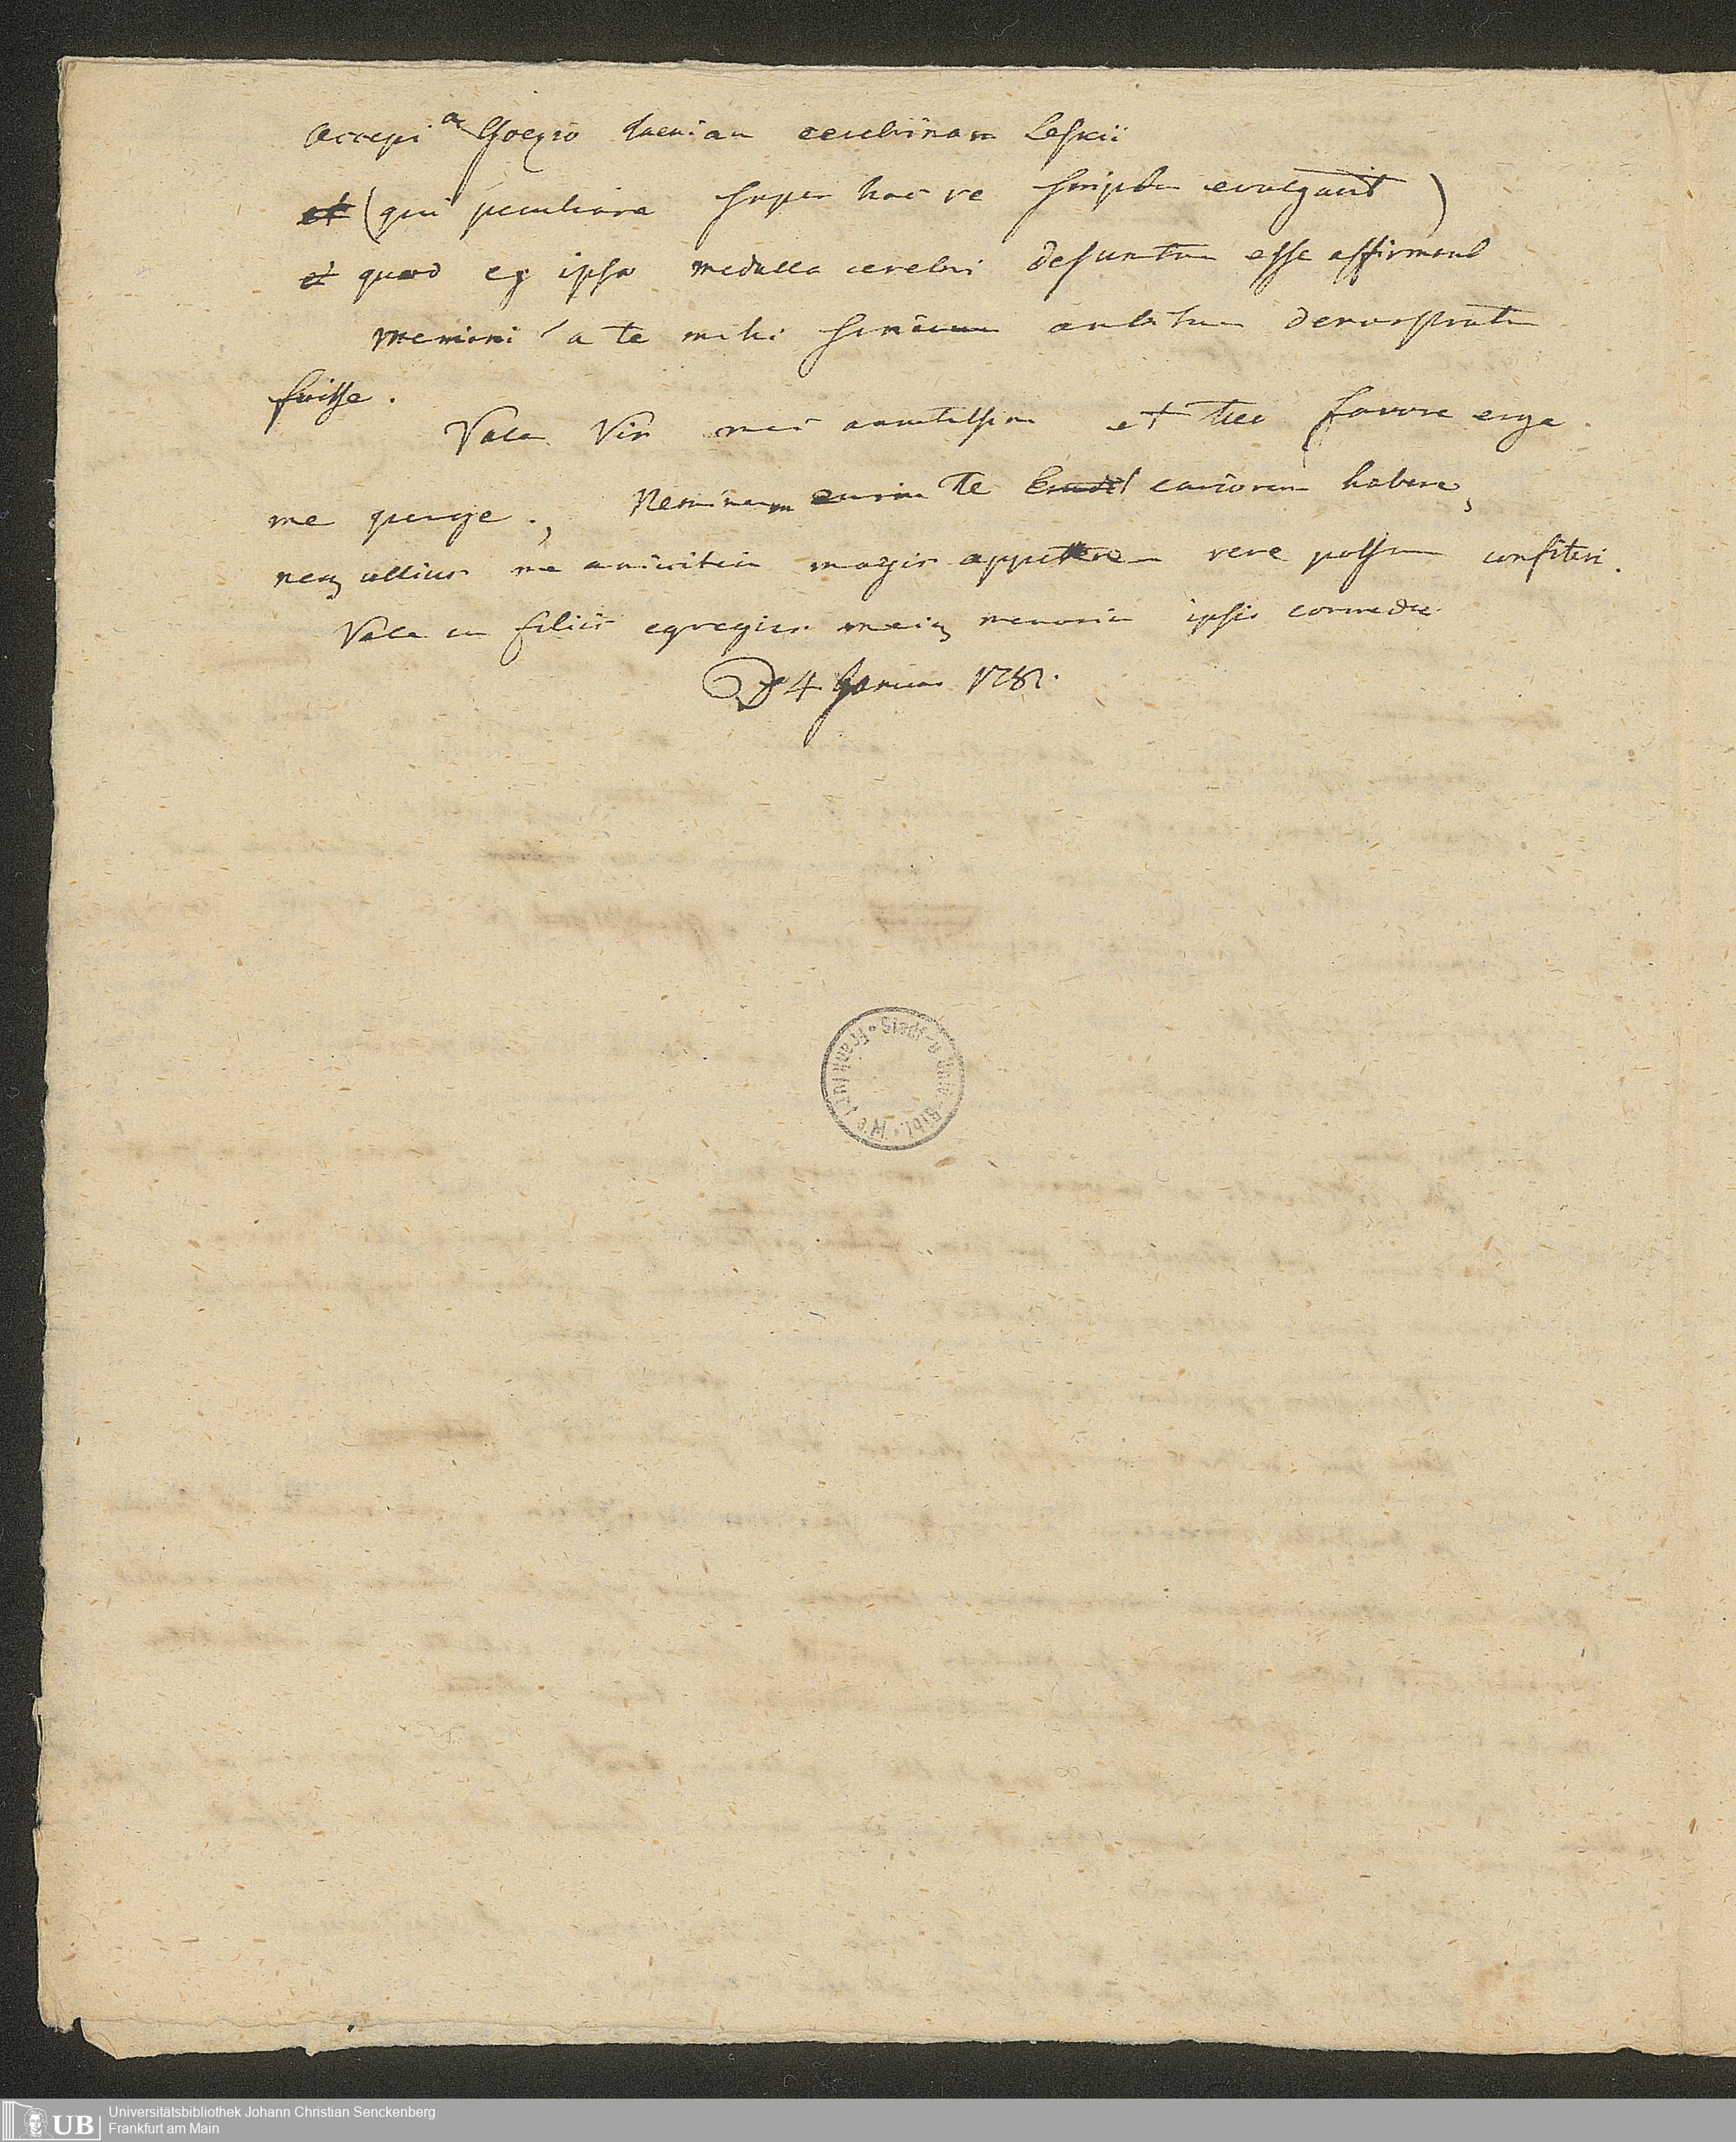 Accepi a Goezio taeniam cerebrinam Leskii
et (qui peculiare super hac re scriptum evulgavit)
et quod ex ipsa medulla cerebri desumtum esse affirmant
memini a te mihi oblatum demonstratum
fuisse.
Vale Vir mihi amicissime et tuo favore erga
me perge. Neminem enim te cariorem habere,
neq ullius me amicitiam magis appetere vere possum confiteri.
Vale cum filiis egregiis meiq memoriam ipsis commenda
D 4 Januar 1781.
Frankfurt Univ. Bibl.
UB
Universitätsbibliothek Johann Christian Senckenberg
Frankfurt am Main